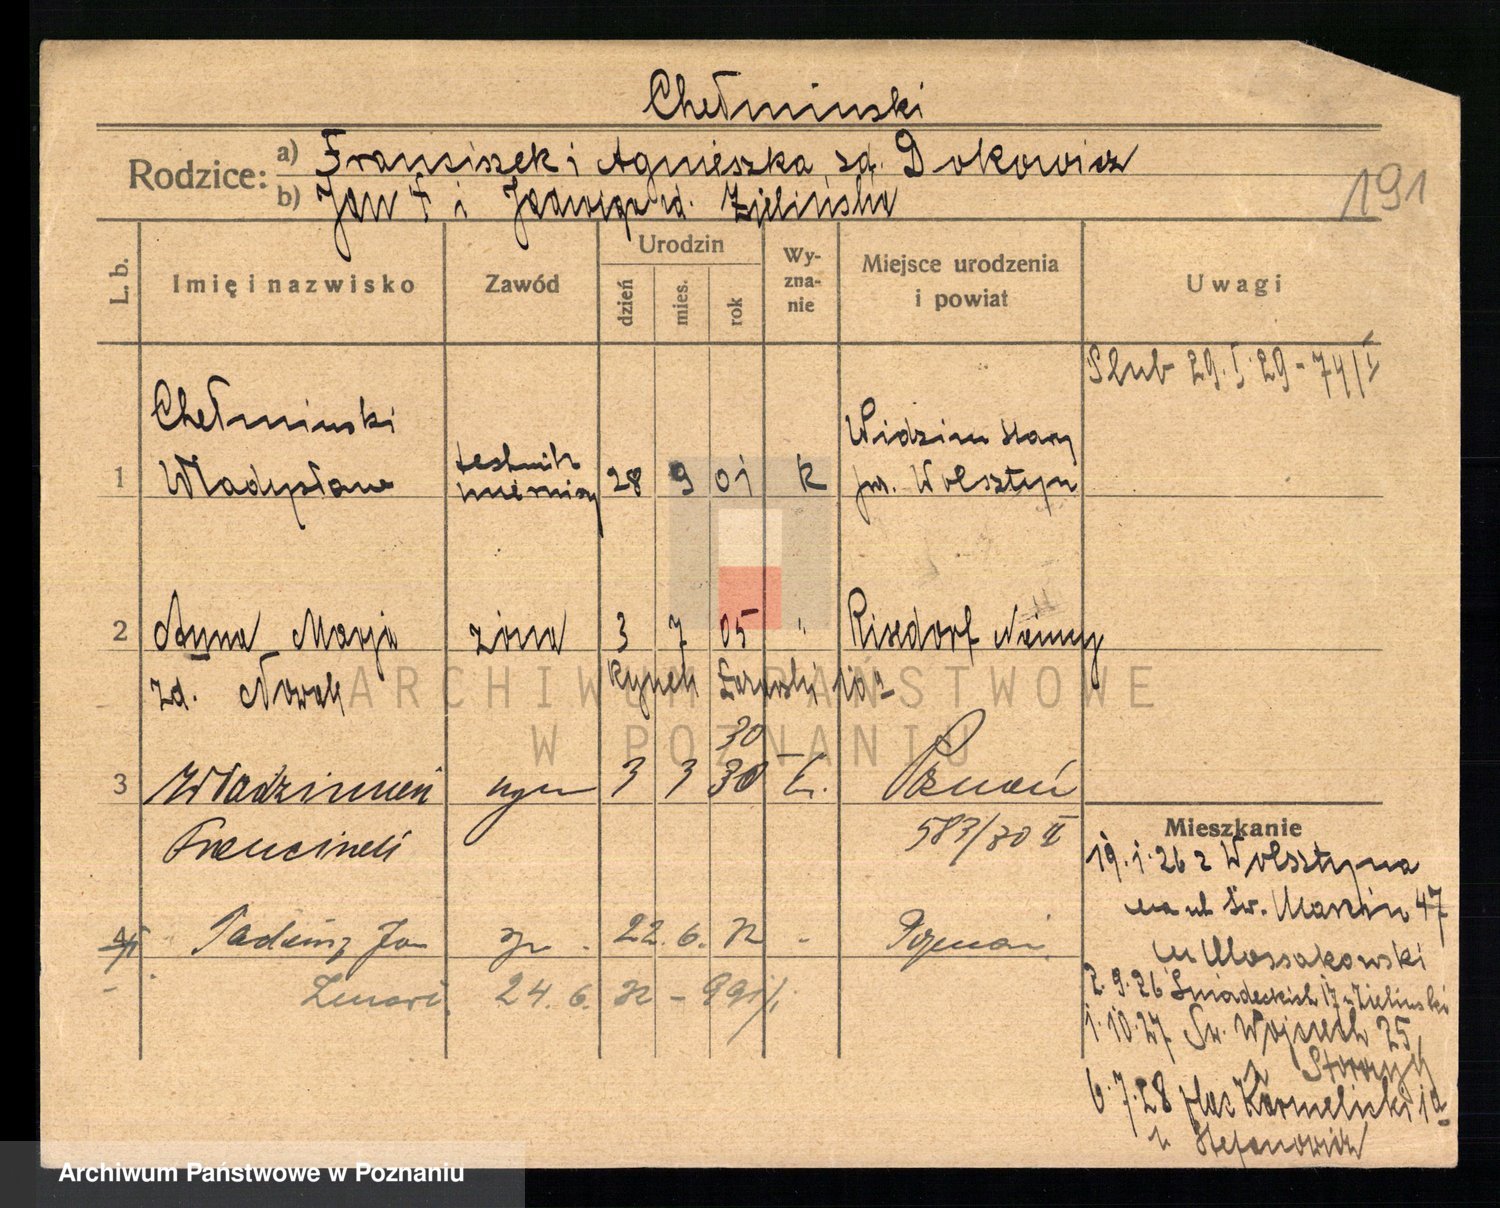 Chełminski
Rodzice: a) Franciszek i Agnieszka zd. Dokowicz
b) Jan † i Jadwiga zd. Zielińska
191
L. b.
Imię i nazwisko
Zawód
Urodzin
dzień
mies.
rok
Wy-
zna-
nie
Miejsce urodzenia
i powiat
Uwagi
Slub 29. I. 29 - 74/I
Chełminski
1 Władysław
technik
mierniczy
28 9 01 k
Widzim stary
pow. Wolsztyn
2 Anna Marja żona 3 7 05 " Risdorf Niemcy
zd. Nowak
Rynek Łazarski 10
30
3 Włodzimierz syn 3 3 30 k. Poznań
Franciszek
583/30 II
Mieszkanie
19.1.26 z Wolsztyna
na ul Św. Marcin 47
u Mossakowski
2.9.26 Śniadeckich 17 u Zielinski
1.10.27 Św. Wojciech 25
6.7.28 plac Karmelicki 1a
u Stefanowicz
4 Tadeusz Jan 22. 6. 32 - Poznań
Zmarł 24. 6. 32 - 991/I
ARCHIWUM PAŃSTWOWE
W POZNANIU
Archiwum Państwowe w Poznaniu